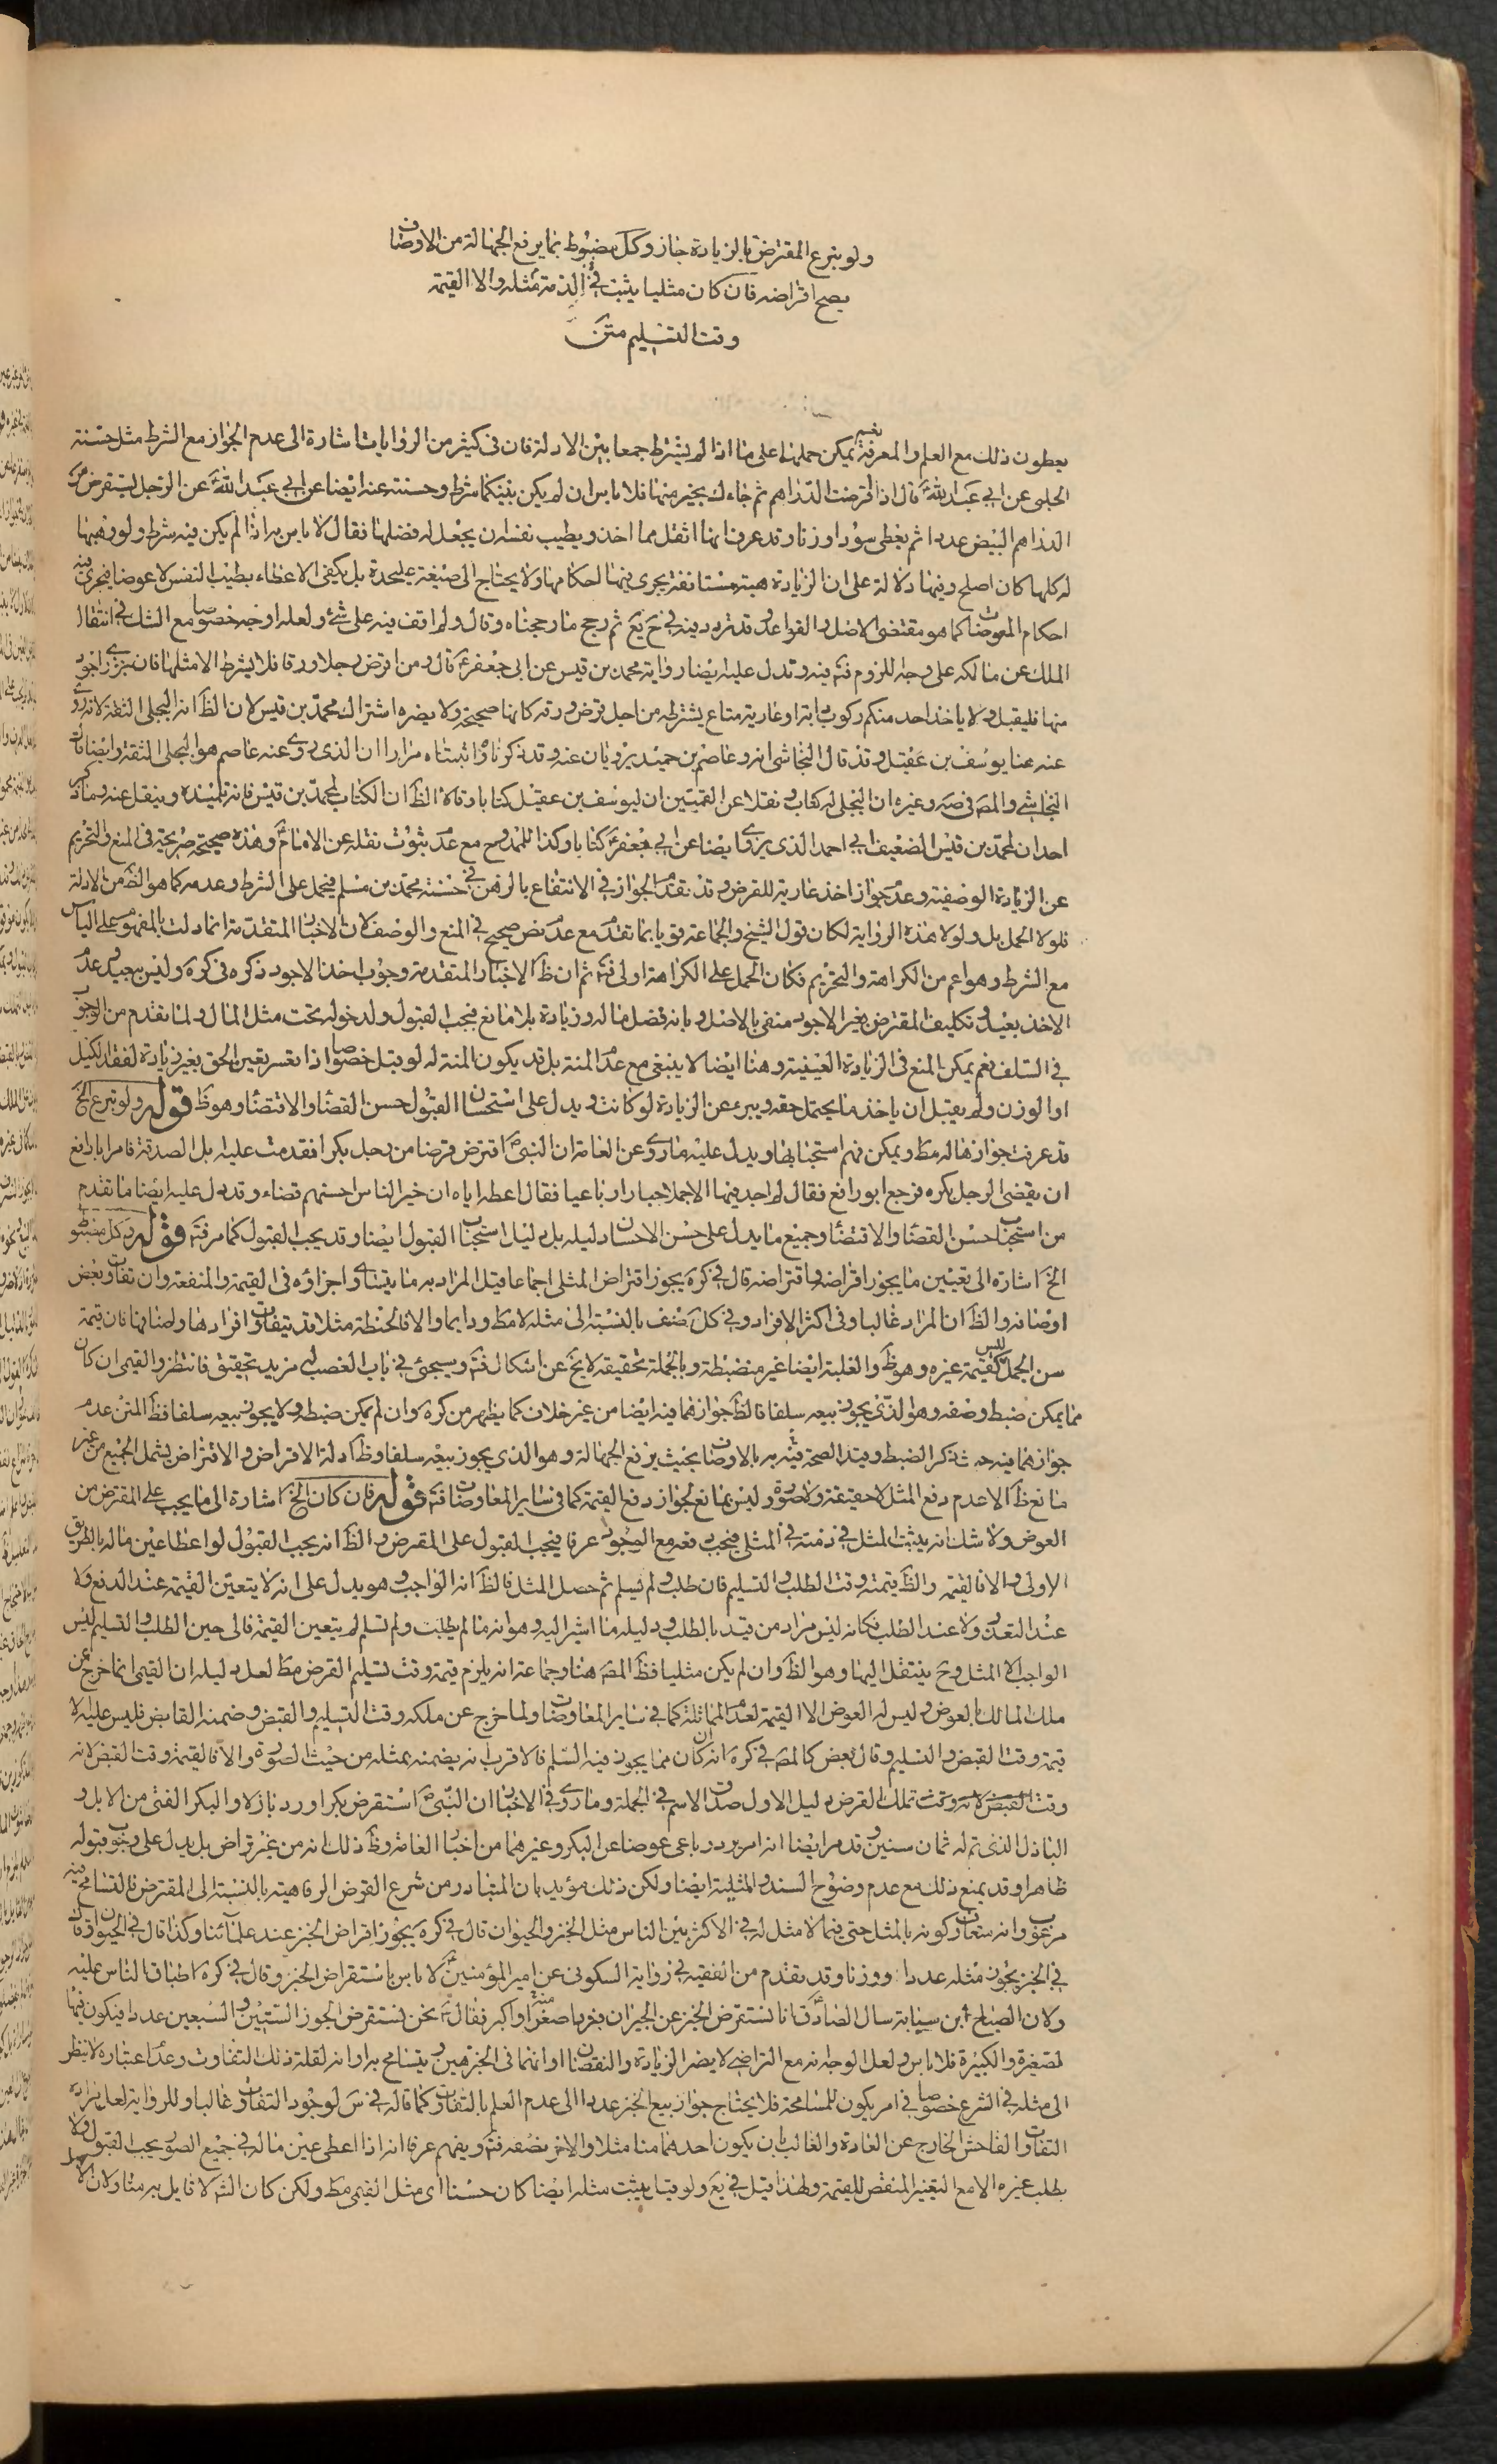 ولو تبرع المقترض بالزيادة جاز وكل مضبوط بما يرفع الجهالة من الاوصاف
يصح اقراضه فان كان مثليا يثبت في الذمة مثله والا القيمة
وقت التسليم متن
يعطون ذلك مع العلم والمعرفة نعم يمكن حملها على ما اذا لم يشترط جمعا بين الادلة فان في كثير من الروايات اشارة الى عدم الجواز مع الشرط مثل حسنة
الحلبي عن ابي عبد الله ع قال اذا اقرضت الدراهم ثم جاءك بخير منها فلا باس ان لم يكن بينكما شرط وحسنته عنه ايضا عن ابي عبد الله ع عن الرجل يستقرض من
الدراهم البيض عددا ثم يعطي سودا وزنا وقد عرف انها اثقل مما اخذ ويطيب نفسه ان يجعل له فضلها فقال لا باس به اذا لم يكن فيه شرط ولو وهبها
له كلها كان اصلح وفيها دلالة على ان الزيادة هبة مستانفة يجري فيها احكامها ولا يحتاج الى صيغة عليحدة بل يكفي الاعطاء بطيب النفس لا عوضا فيجري فيه
احكام المعوضات كما هو مقتضى الاصل والقواعد وقد تردد فيه في ح يع ثم رجح ما رجحناه وقال ولم اقف فيه على شئ ولعله اوجه خصوصا مع الشك في انتقال
الملك عن مالكه على وجه اللزوم فتم فيه وتدل عليه ايضا رواية محمد بن قيس عن ابي جعفر ع قال ومن اقرض رجلا ورقا فلا يشرط الا مثلها فان جوزي اجود
منها فليقبل ولا ياخذ احد منكم ركوب دابة او عارية متاع يشترطه من اجل قرض ورقه كانها صحيحة ولا يضره اشتراك محمد بن قيس لان الظ انه البجلي الثقة لانه روى
عنه هنا يوسف بن عقيل وقد قال النجاشي انه وعاصم بن حميد يرويان عنه وقد ذكرنا واثبتناه مرارا ان الذي روى عنه عاصم هو البجلي الثقة وايضا قال
النجاشي والمص في صه وغيره ان البجلي له كتاب ونقلا عن القميين ان ليوسف بن عقيل كتابا وقالا الظ ان الكتاب لمحمد بن قيس فانه تلميذه وينقل عنه وما ذكر
احد ان لمحمد بن قيس الضعيف ابي احمد الذي يروي ايضا عن ابي جعفر ع كتابا وكذا للممدوح مع عدم ثبوت نقله عن الامام ع وهذه صحيحة صريحة في المنع والتحريم
عن الزيادة الوصفية وعدم جواز اخذ عارية للقرض وقد تقدم الجواز في الانتفاع بالرهن في حسنة محمد بن مسلم فيحمل على الشرط وعدمه كما هو الظ من الادلة
فلولا الحمل بل ولولا هذه الرواية لكان قول الشيخ والجماعة قويا بما تقدم مع عدم نص صحيح في المنع والوصف لان الاخبار المتقدمة انما دلت بالمفهوم على الباس
مع الشرط وهو اعم من الكراهة والتحريم فكان الحمل على الكراهة اولى فتم ثم ان ظ الاخبار المتقدمة وجوب اخذ الاجود ذكره في كره وليس ببعيد وعدم
الاخذ بعيد وتكليف المقترض بغير الاجود منفي بالاصل وبانه فضل ماله وزيادة بلا مانع فيجب القبول ولدخوله تحت مثل المال ولما تقدم من الوجوب
في السلف نعم يمكن المنع في الزيادة العينية وهنا ايضا لا ينبغي مع عدم المنة بل قد يكون المنة له لو قبل خصوصا اذا تعسر تعيين الحق بغير زيادة لفقد الكيل
او الوزن ولم يقبل ان ياخذ ما يحتمل حقه ويبرء عن الزيادة لو كانت ويدل على استحسان القبول حسن القضاء والاقتضاء وهو ظ قوله ولو تبرع الخ
قد عرفت جوازها له مط ويمكن فهم استحبابها ويدل عليه ما روي عن العامة ان النبي ص اقترض قرضا من رجل بكرا فقدمت عليه ابل الصدقة فامر ابا رافع
ان يقضي الرجل بكره فرجع ابو رافع فقال لم اجد فيها الا جملا خيارا رباعيا فقال اعطه اياه ان خير الناس احسنهم قضاء وقد يدل عليه ايضا ما تقدم
من استحباب حسن القضاء والاقتضاء وجميع ما يدل على حسن الاحسان دليله بل دليل استحباب القبول ايضا وقد يجب القبول كما مر فتم قوله وكل مضبوط
الخ اشارة الى تعيين ما يجوز اقراضه واقتراضه قال في كره يجوز اقتراض المثلي اجماعا قيل المراد به ما يتساوى اجزاؤه في القيمة والمنفعة وان تفاوت بعض
اوصافه والظ ان المراد غالبا وفي اكثر الافراد وفي كل صنف بالنسبة الى مثله لا مط ودايما والا فالحنطة مثلا قد يتفاوت افرادها واصنافها فان قيمة
من الجمل ليس كقيمة غيره وهو ظ والغلبة ايضا غير منضبطة وبالجملة تحقيقه لا يخ عن اشكال فتم وسيجئ في باب الغصب له مزيد تحقيق فانتظر والقيمي ان كان
مما يمكن ضبط وصفه وهو الذي يجوز بيعه سلفا فالظ جوازهما فيه ايضا من غير خلاف كما يظهر من كره وان لم يمكن ضبطه ولا يجوز بيعه سلفا فظ المتن عدم
جوازهما فيه حيث ذكر الضبط وقيد الصحة فيه به بالاوصاف بحيث يرفع الجهالة وهو الذي يجوز بيعه سلفا وظ ادلة الاقراض والاقتراض يشمل الجميع من غير
مانع ظ الا عدم دفع المثل لا حقيقة ولا صورة وليس بمانع لجواز دفع القيمة كما في ساير المعاوضات فتم قوله فان كان الخ اشارة الى ما يجب على المقترض من
العوض ولا شك انه يثبت المثل في ذمته في المثلي فيجب دفعه مع الوجود عرفا فيجب القبول على المقرض والظ انه يجب القبول لو اعطا عين ماله بالطريق
الاولى والا فالقيمة والظ قيمته وقت الطلب والتسليم فان طلب ولم يسلم ثم حصل المثل فالظ انه الواجب وهو يدل على انه لا يتعين القيمة عند الدفع ولا
عند التعذر ولا عند الطلب فكانه ليس مراد من قيد بالطلب ودليله ما اشير اليه وهو انه ما لم يطلب ولم تسلم لم يتعين القيمة فالى حين الطلب والتسليم ليس
الواجب الا المثل وح ينتقل اليها وهو الظ وان لم يكن مثليا فظ المص هنا وجماعة انه يلزم قيمته وقت تسليم القرض مط لعل دليله ان القيمي انما خرج عن
ملك المالك بالعوض وليس له العوض الا القيمة لعدم المماثلة كما في ساير المعاوضات ولما خرج عن ملكه وقت التسليم والقبض وضمنه القابض فليس عليه الا
قيمته وقت القبض والتسليم وقال بعض كالمص في كره انه ان كان مما يجوز فيه السلم فالاقرب انه يضمنه بمثله من حيث الصورة والا فالقيمة وقت القبض لانه
وقت القبض لانه وقت تملك القرض دليل الاول صدق الاسم في الجملة وما روي في الاخبار ان النبي ص استقرض بكرا ورد بازلا والبكر الفتى من الابل و
الباذل الذي تم له ثمان سنين وقد مر ايضا انه امر برد رباعي عوضا عن البكر وغيرهما من اخبار العامة وظ ذلك انه من غير تراض بل يدل على وجوب قبوله
ظاهرا وقد يمنع ذلك مع عدم وضوح السند والمثلية ايضا ولكن ذلك مؤيد بان المتبادر من شرع القرض الرفاهية بالنسبة الى المقترض فالتسامح فيه
مرغوب وانه متعارف كونه بالمثل حتى فيما لا مثل له في الاكثر بين الناس مثل الخبز والحيوان قال في كره يجوز اقراض الخبز عند علمائنا وكذا قال في الحيوان وقال
في الخبز يجوز مثله عددا ووزنا وقد تقدم من الفقيه في رواية السكوني عن امير المؤمنين ع لا باس باستقراض الخبز وقال في كره اطباق الناس عليه
ولان الصباح ابن سيابة سال الصادق ع انا نستقرض الخبز عن الجيران فنرد اصغر منه او اكبر فقال ع نحن نستقرض الجوز الستين والسبعين عددا فيكون فيها
لصغيرة والكبيرة فلا باس ولعل الوجه انه مع التراضي لا يضر الزيادة والنقصان او انهما في الخبز هين ويتسامح به او انه لقلة ذلك التفاوت وعدم اعتباره لا ينظر
الى مثله في الشرع خصوصا في امر يكون للمسامحة فلا يحتاج جواز بيع الخبز عددا الى عدم العلم بالتفاوت كما قاله في س لوجود التفاوت غالبا وللرواية لعل مراده
التفاوت الفاحش الخارج عن العادة والغالب بان يكون احدهما منا مثلا والاخر نصفه فتم ويفهم عرفا انه اذا اعطى عين ماله في جميع الصور يجب القبول ولا
يطلب غيره الا مع التغير المنقص للقيمة ولهذا قيل في يع ولو قيل يثبت مثله ايضا كان حسنا اى مثل القيمي مط ولكن كان الش لا قايل به منا ولان الا